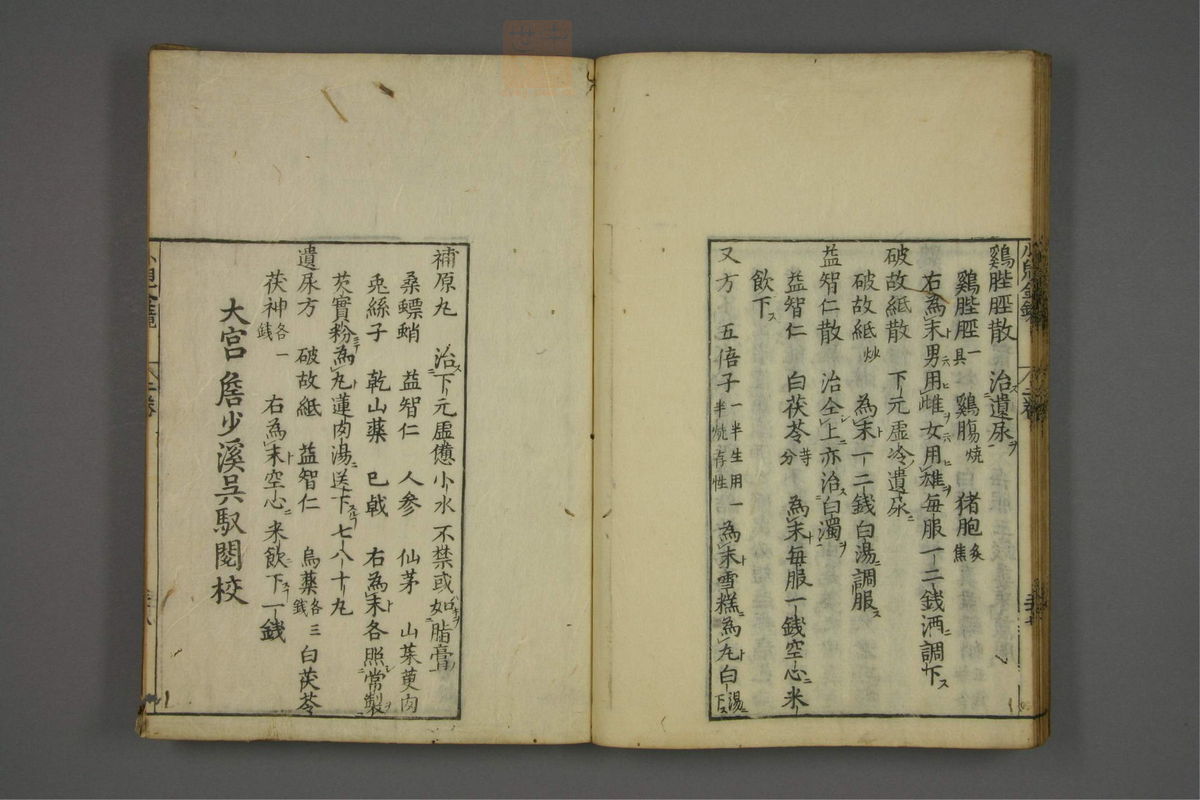 鷄膍胵散　治遺尿
鷄膍胵一具　鷄腸燒　猪胞炙焦
右為末男用雌女用雄毎服一二錢酒調下
破故紙散　下元虚冷遺尿
破故紙炒　為末一二錢白湯調服
益智仁散　治仝上亦治白濁
益智仁　白茯苓等分　為末毎服一錢空心米
飲下
又方　五倍子一半生用一半燒存性　為末雪糕為丸白湯下
補原丸　治下元虚憊小水不禁或如脂膏
桑螵蛸　益智仁　人参　仙茅　山茱萸肉
兎絲子　乾山藥　巳戟　右為末各照常製
芡實粉為丸蓮肉湯送下七八十丸
遺尿方　破故紙　益智仁　烏藥各三錢　白茯苓
茯神各一錢　右為末空心米飲下一錢
大宮　詹少溪呉馭閲校